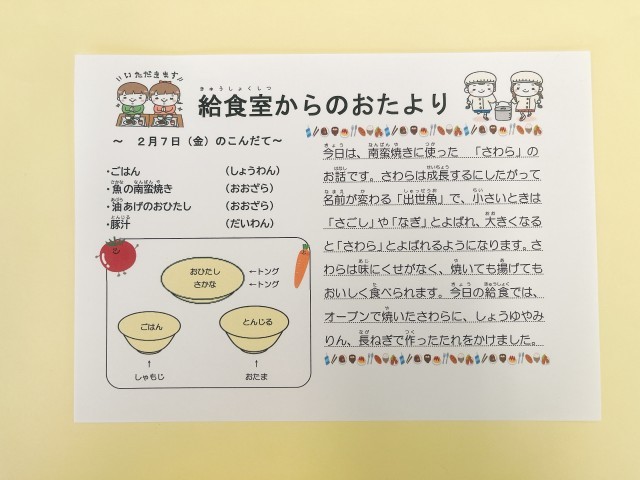 いただきます
給食室からのおたより
きゅうしょくしつ
～　２月７日（金）のこんだて～
・ごはん　（しょうわん）
・魚の南蛮焼き　（おおざら）
・油あげのおひたし　（おおざら）
・豚汁　（だいわん）
おひたし　←トング
さかな　←トング
ごはん　とんじる
↑　↑
しゃもじ　おたま
今日は、南蛮焼きに使った　「さわら」の
お話です。さわらは成長するにしたがって
名前が変わる「出世魚」で、小さいときは
「さごし」や「なぎ」とよばれ、大きくなる
と「さわら」とよばれるようになります。さ
わらは味にくせがなく、焼いても揚げても
おいしく食べられます。今日の給食では、
オーブンで焼いたさわらに、しょうゆやみ
りん、長ねぎで作ったたれをかけました。